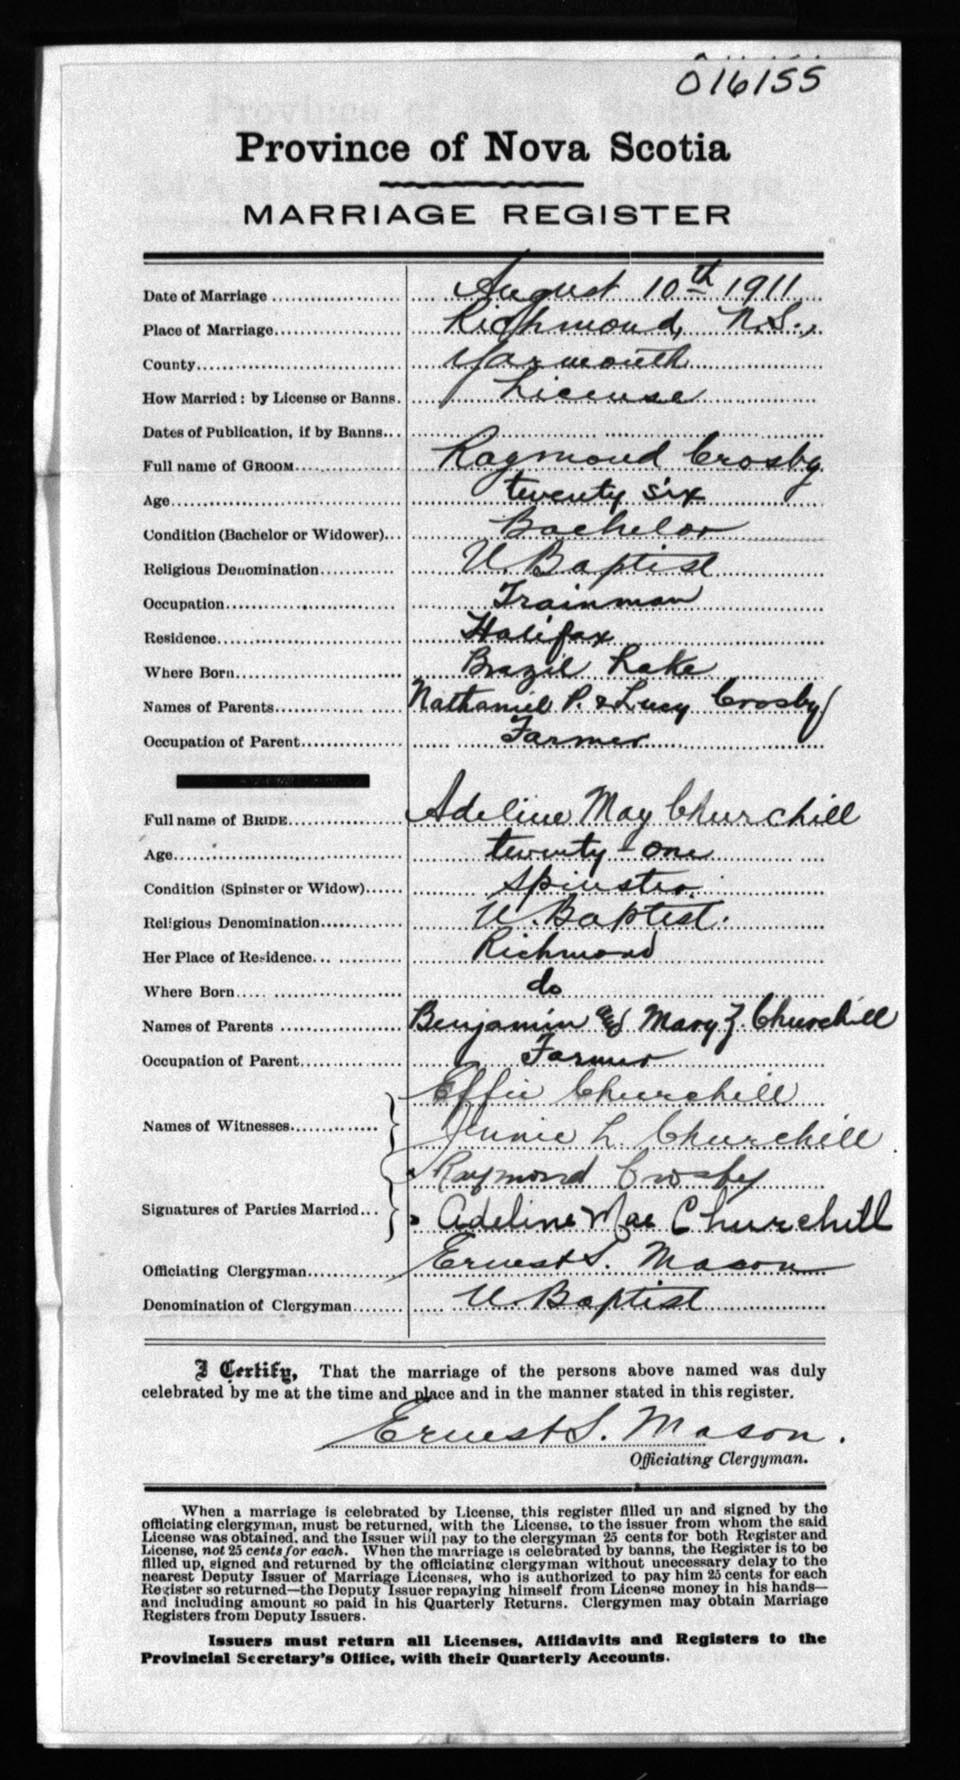 016155
Province of Nova Scotia
MARRIAGE REGISTER
Date of Marriage August 10th 1911
Place of Marriage Richmond, N.S.,
County Yarmouth
How Married: by License or Banns. License
Dates of Publication, if by Banns
Full name of GROOM Raymond Crosby
Age twenty six
Condition (Bachelor or Widower) Bachelor
Religious Denomination U. Baptist
Occupation Trainman
Residence Halifax
Where Born Brazil Lake
Names of Parents Nathaniel P. & Lucy Crosby
Occupation of Parent Farmer
Full name of BRIDE Adeline May Churchill
Age twenty-one
Condition (Spinster or Widow) Spinster
Religious Denomination U. Baptist.
Her Place of Residence Richmond
Where Born do
Names of Parents Benjamin and Mary Z. Churchill
Occupation of Parent Farmer
Effie Churchill
Names of Witnesses Jennie L. Churchill
Raymond Crosby
Signatures of Parties Married Adeline Mae Churchill
Officiating Clergyman Ernest S. Mason
Denomination of Clergyman U. Baptist
I Certify, That the marriage of the persons above named was duly
celebrated by me at the time and place and in the manner stated in this register.
Ernest S. Mason.
Officiating Clergyman.
When a marriage is celebrated by License, this register filled up and signed by the
officiating clergyman, must be returned, with the License, to the issuer from whom the said
License was obtained, and the Issuer will pay to the clergyman 25 cents for both Register and
License, not 25 cents for each. When the marriage is celebrated by banns, the Register is to be
filled up, signed and returned by the officiating clergyman without unecessary delay to the
nearest Deputy Issuer of Marriage Licenses, who is authorized to pay him 25 cents for each
Register so returned—the Deputy Issuer repaying himself from License money in his hands—
and including amount so paid in his Quarterly Returns. Clergymen may obtain Marriage
Registers from Deputy Issuers.
Issuers must return all Licenses, Affidavits and Registers to the
Provincial Secretary's Office, with their Quarterly Accounts.